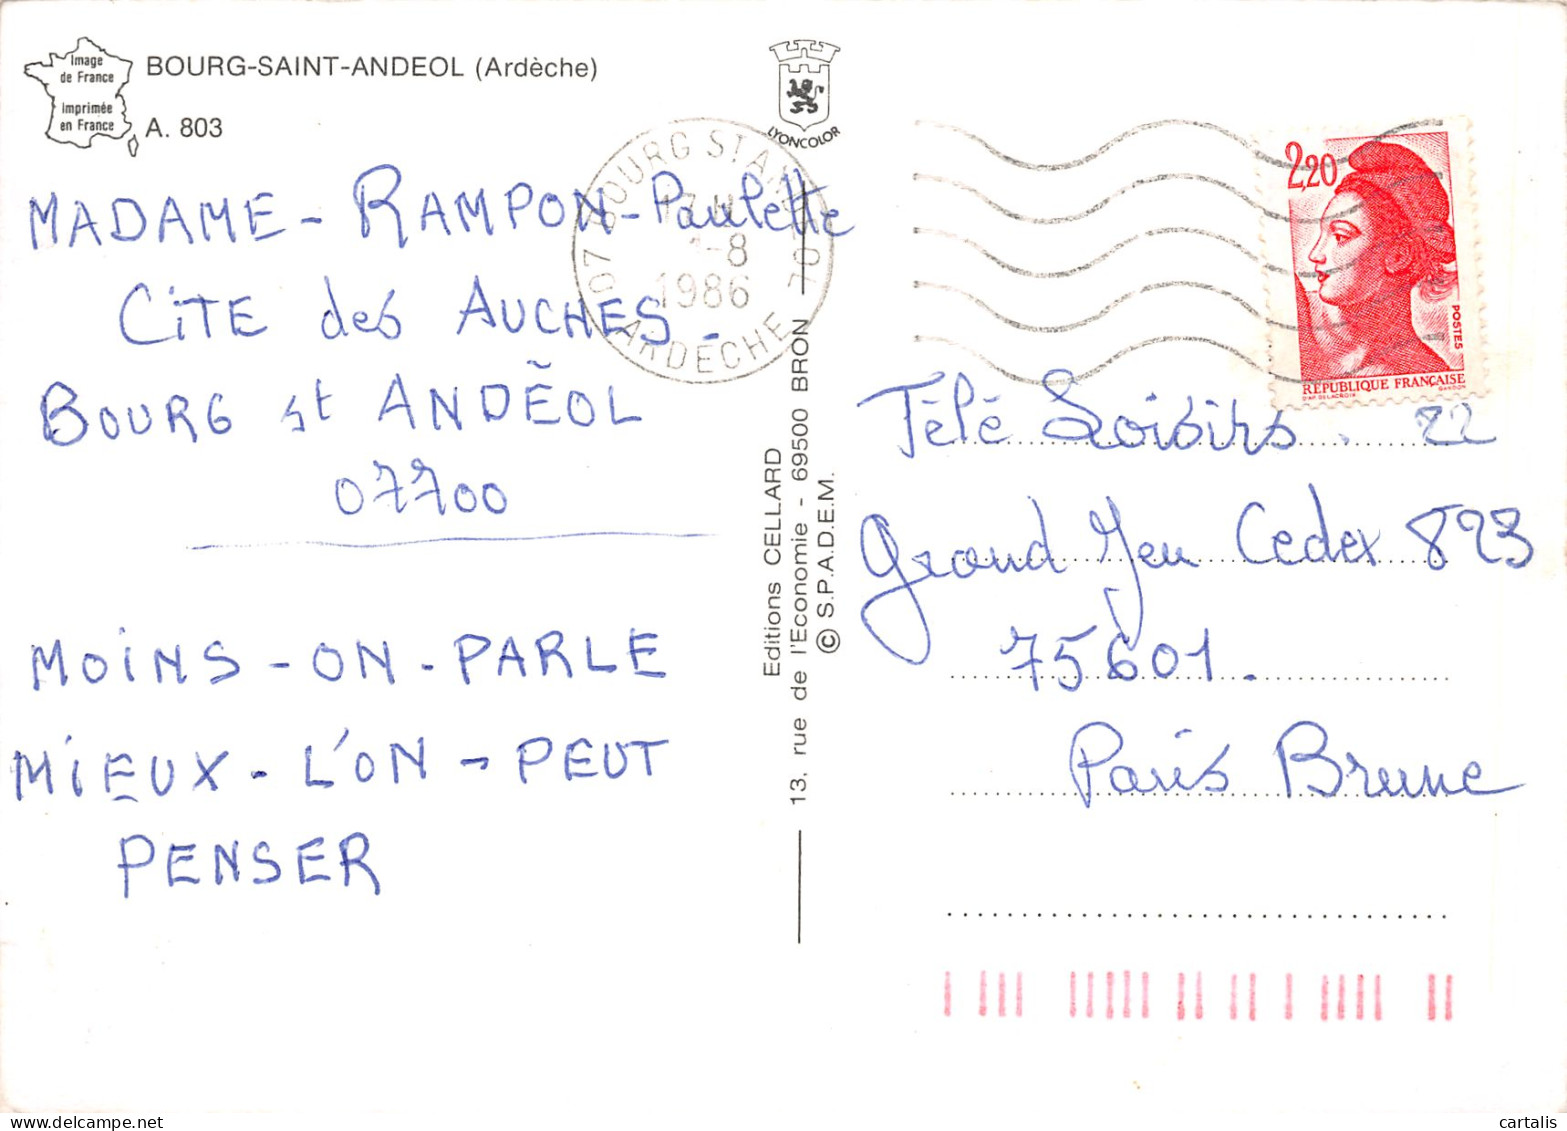 Image
de France
Imprimée
en France
BOURG-SAINT-ANDEOL (Ardèche)
A. 803
LYONCOLOR
MADAME - RAMPON - Paulette
CiTE des AUCHES -
BOURG st ANDÉOL
07700
MOiNS - ON - PARLE
MiEUX - L'ON - PEUT
PENSER
07 BOURG ST ANDEOL
-8
1986
ARDECHE
Editions CELLARD
13, rue de l'Economie - 69500 BRON
© S.P.A.D.E.M.
2,20
POSTES
RÉPUBLIQUE FRANÇAISE
D'AP. DELACROIX
GANDON
Télé Loisirs. 22
Grand Jeu Cedex 823
75601.
Paris Brune
cartalis